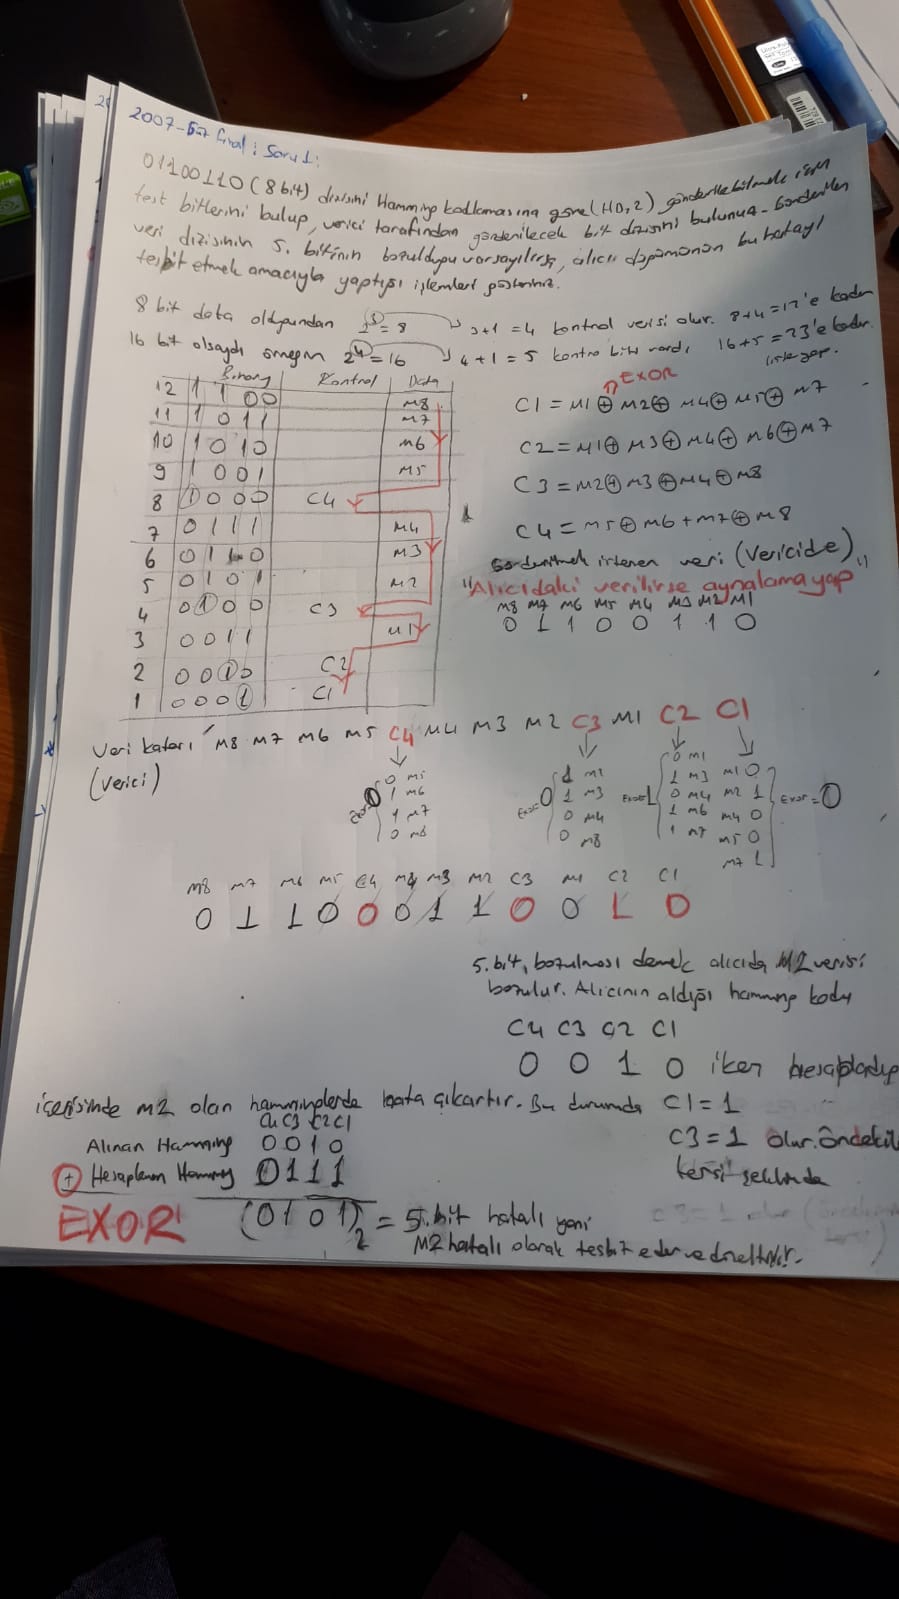 2007-Güz final: Soru 1:
01100110 (8 bit) dizisini Hamming kodlamasına göre (HD,2) gönderilebilmek için
test bitlerini bulup, verici tarafından gönderilecek bit dizisini bulunuz. Gönderilen
veri dizisinin 5. bitinin bozulduğu varsayılırsa, alıcı düğümünün bu hatayı
tespit etmek amacıyla yaptığı işlemleri gösteriniz.
8 bit data olduğundan 2^3 = 8 → 3+1 = 4 kontrol verisi olur. 8+4=12'e kadar
16 bit olsaydı örneğin 2^4 = 16 → 4+1 = 5 kontrol biti vardı 16+5=23'e kadar.
liste yap.
Binary Kontrol Data
12 1100 M8
11 1011 M7
10 1010 M6
9 1001 M5
8 1000 C4
7 0111 M4
6 0110 M3
5 0101 M2
4 0100 C3
3 0011 M1
2 0010 C2
1 0001 C1
EXOR
C1 = M1 ⊕ M2 ⊕ M4 ⊕ M5 ⊕ M7
C2 = M1 ⊕ M3 ⊕ M4 ⊕ M6 ⊕ M7
C3 = M2 ⊕ M3 ⊕ M4 ⊕ M8
C4 = M5 ⊕ M6 + M7 ⊕ M8
Gönderilmek istenen veri (Vericide)
"Alıcıdaki verilirse aynalama yap"
M8 M7 M6 M5 M4 M3 M2 M1
0 1 1 0 0 1 1 0
Veri katarı M8 M7 M6 M5 C4 M4 M3 M2 C3 M1 C2 C1
(verici)
0 M5
1 M6
1 M7
0 M8
Exor=0
1 M2
1 M3
0 M4
0 M8
Exor=0
0 M1
1 M3
0 M4
1 M6
1 M7
Exor=1
M1 0
M2 1
M4 0
M5 0
M7 1
Exor=0
M8 M7 M6 M5 C4 M4 M3 M2 C3 M1 C2 C1
0 1 1 0 0 0 1 1 0 0 1 0
5. bit, bozulması demek alıcıda M2 verisi
bozulur. Alıcının aldığı hamming kodu
C4 C3 C2 C1
0 0 1 0 iken hesapladığı
içerisinde M2 olan hamminglerde hata çıkartır. Bu durumda C1=1
C3=1 olur. Öndekilerin
tersi şeklinde
C4 C3 C2 C1
Alınan Hamming 0010
+ Hesaplanan Hamming 0111
EXOR (0101)2 = 5. bit hatalı yani
M2 hatalı olarak tesbit eder ve düzeltilir.